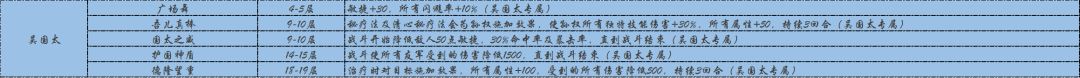 广场舞 4-5层 敏捷+30，所有闪避率+10%（吴国太专属）
吾儿真棒 9-10层 秘疗法及清心秘疗法会为孙权施加效果，使孙权所有独特技能伤害+30%，所有属性+50，持续3回合（吴国太专属）
吴国太 国太之威 9-10层 战斗开始降低敌人50点敏捷，30%命中率及暴击率，直到战斗结束（吴国太专属）
护国神盾 14-15层 战斗使所有友军受到的伤害降低1500，直到战斗结束（吴国太专属）
德隆望重 18-19层 治疗时对目标施加效果，所有属性+100，受到的所有伤害降低300，持续3回合（吴国太专属）